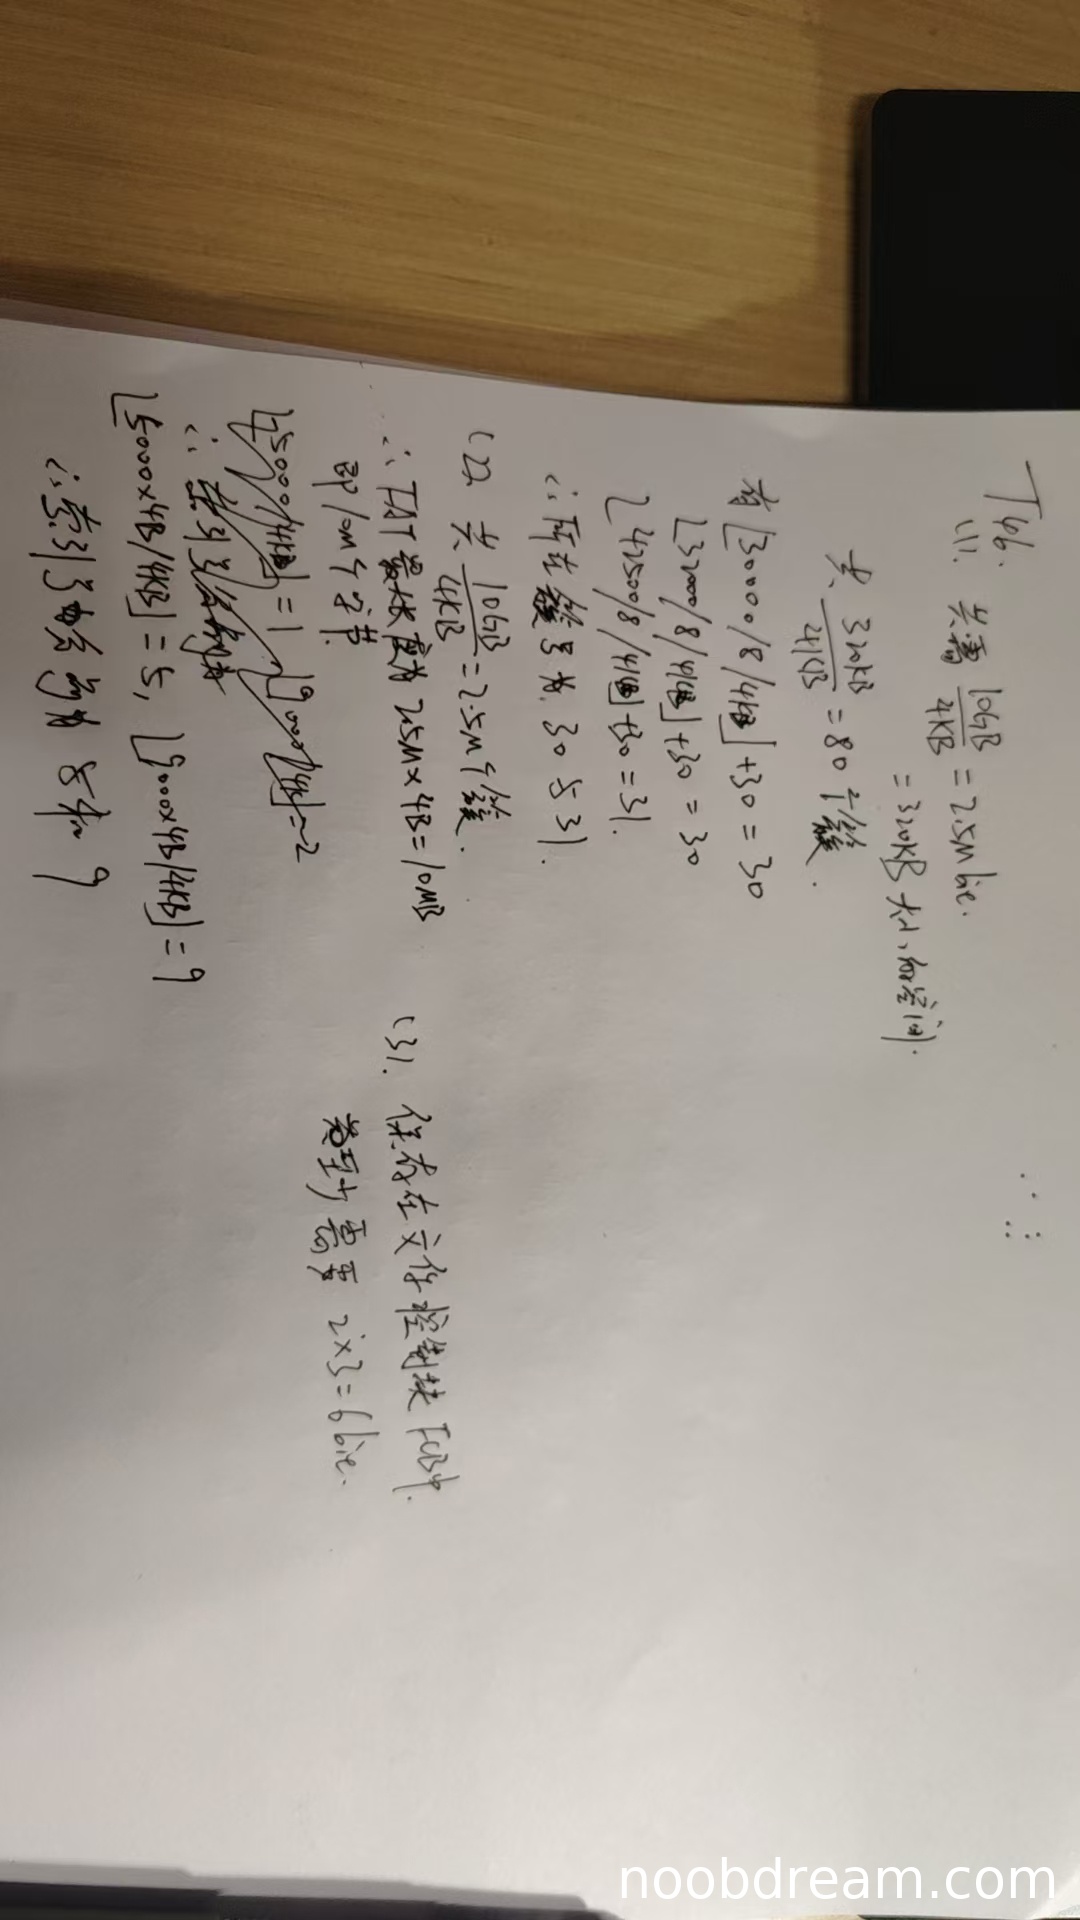 T46.
(1). 共需 10GB/4KB = 2.5M bit.
= 320KB 大小的空间.
共 320KB/4KB = 80个簇.
有 ⌊30000/8/4KB⌋+30 = 30
⌊32000/8/4KB⌋+30 = 30
⌊42500/8/4KB⌋+30 = 31.
∴ 所在簇号为 30 与 31.
(2) 共 10GB/4KB = 2.5M个簇.
∴ FAT 最大长度为 2.5M×4B=10MB
即10M个字节.
⌊5000×4B/4KB⌋ = 5, ⌊9000×4B/4KB⌋ = 9
∴ 索引 分别为 5和 9
(3). 保存在文件控制块FCB中.
至少需要 2×3=6 bit.
noobdream.com